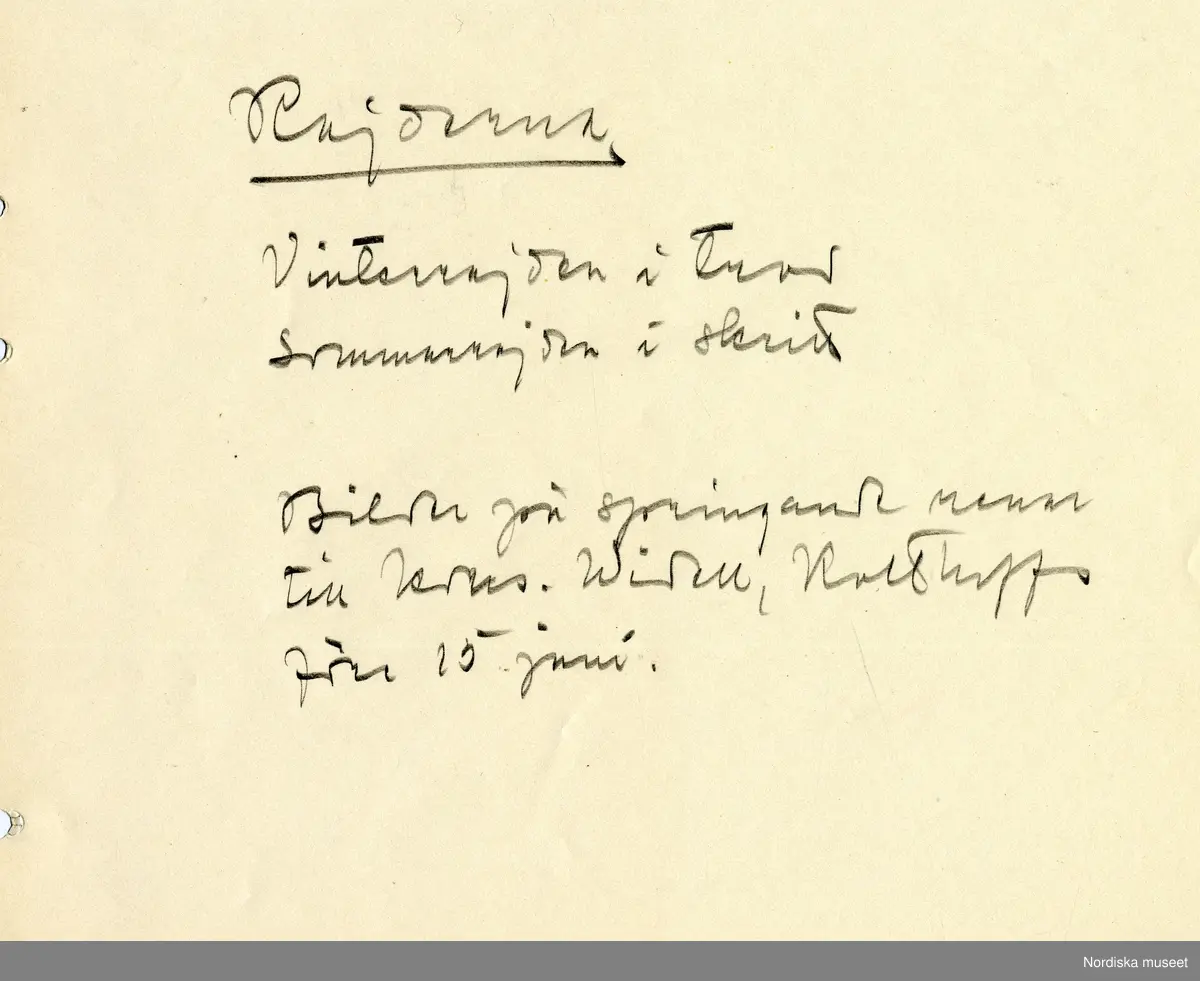 Rajderna
Vinterrajden i trav
Sommarrajden i skritt
Bilder på springande renar
till Widell, Kolthoffs
före 15 juni.
Nordiska museet